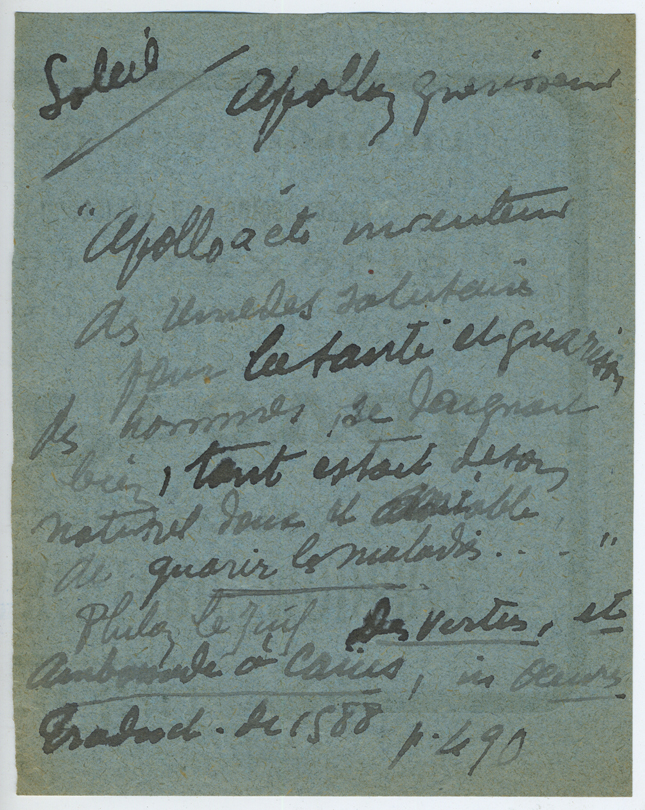 Soleil / Apollon guerisseur
"Apollo a été inventeur
des remedes salutaire
pour la santé et guarison
des hommes, se daignant
bien, tant estoit de son
naturel doux et amiable,
de guarir les malades... "
Philon le Juif Des vertus, et
ambassade à Caius, in Oeuvres
Traduct. de 1588 p. 490